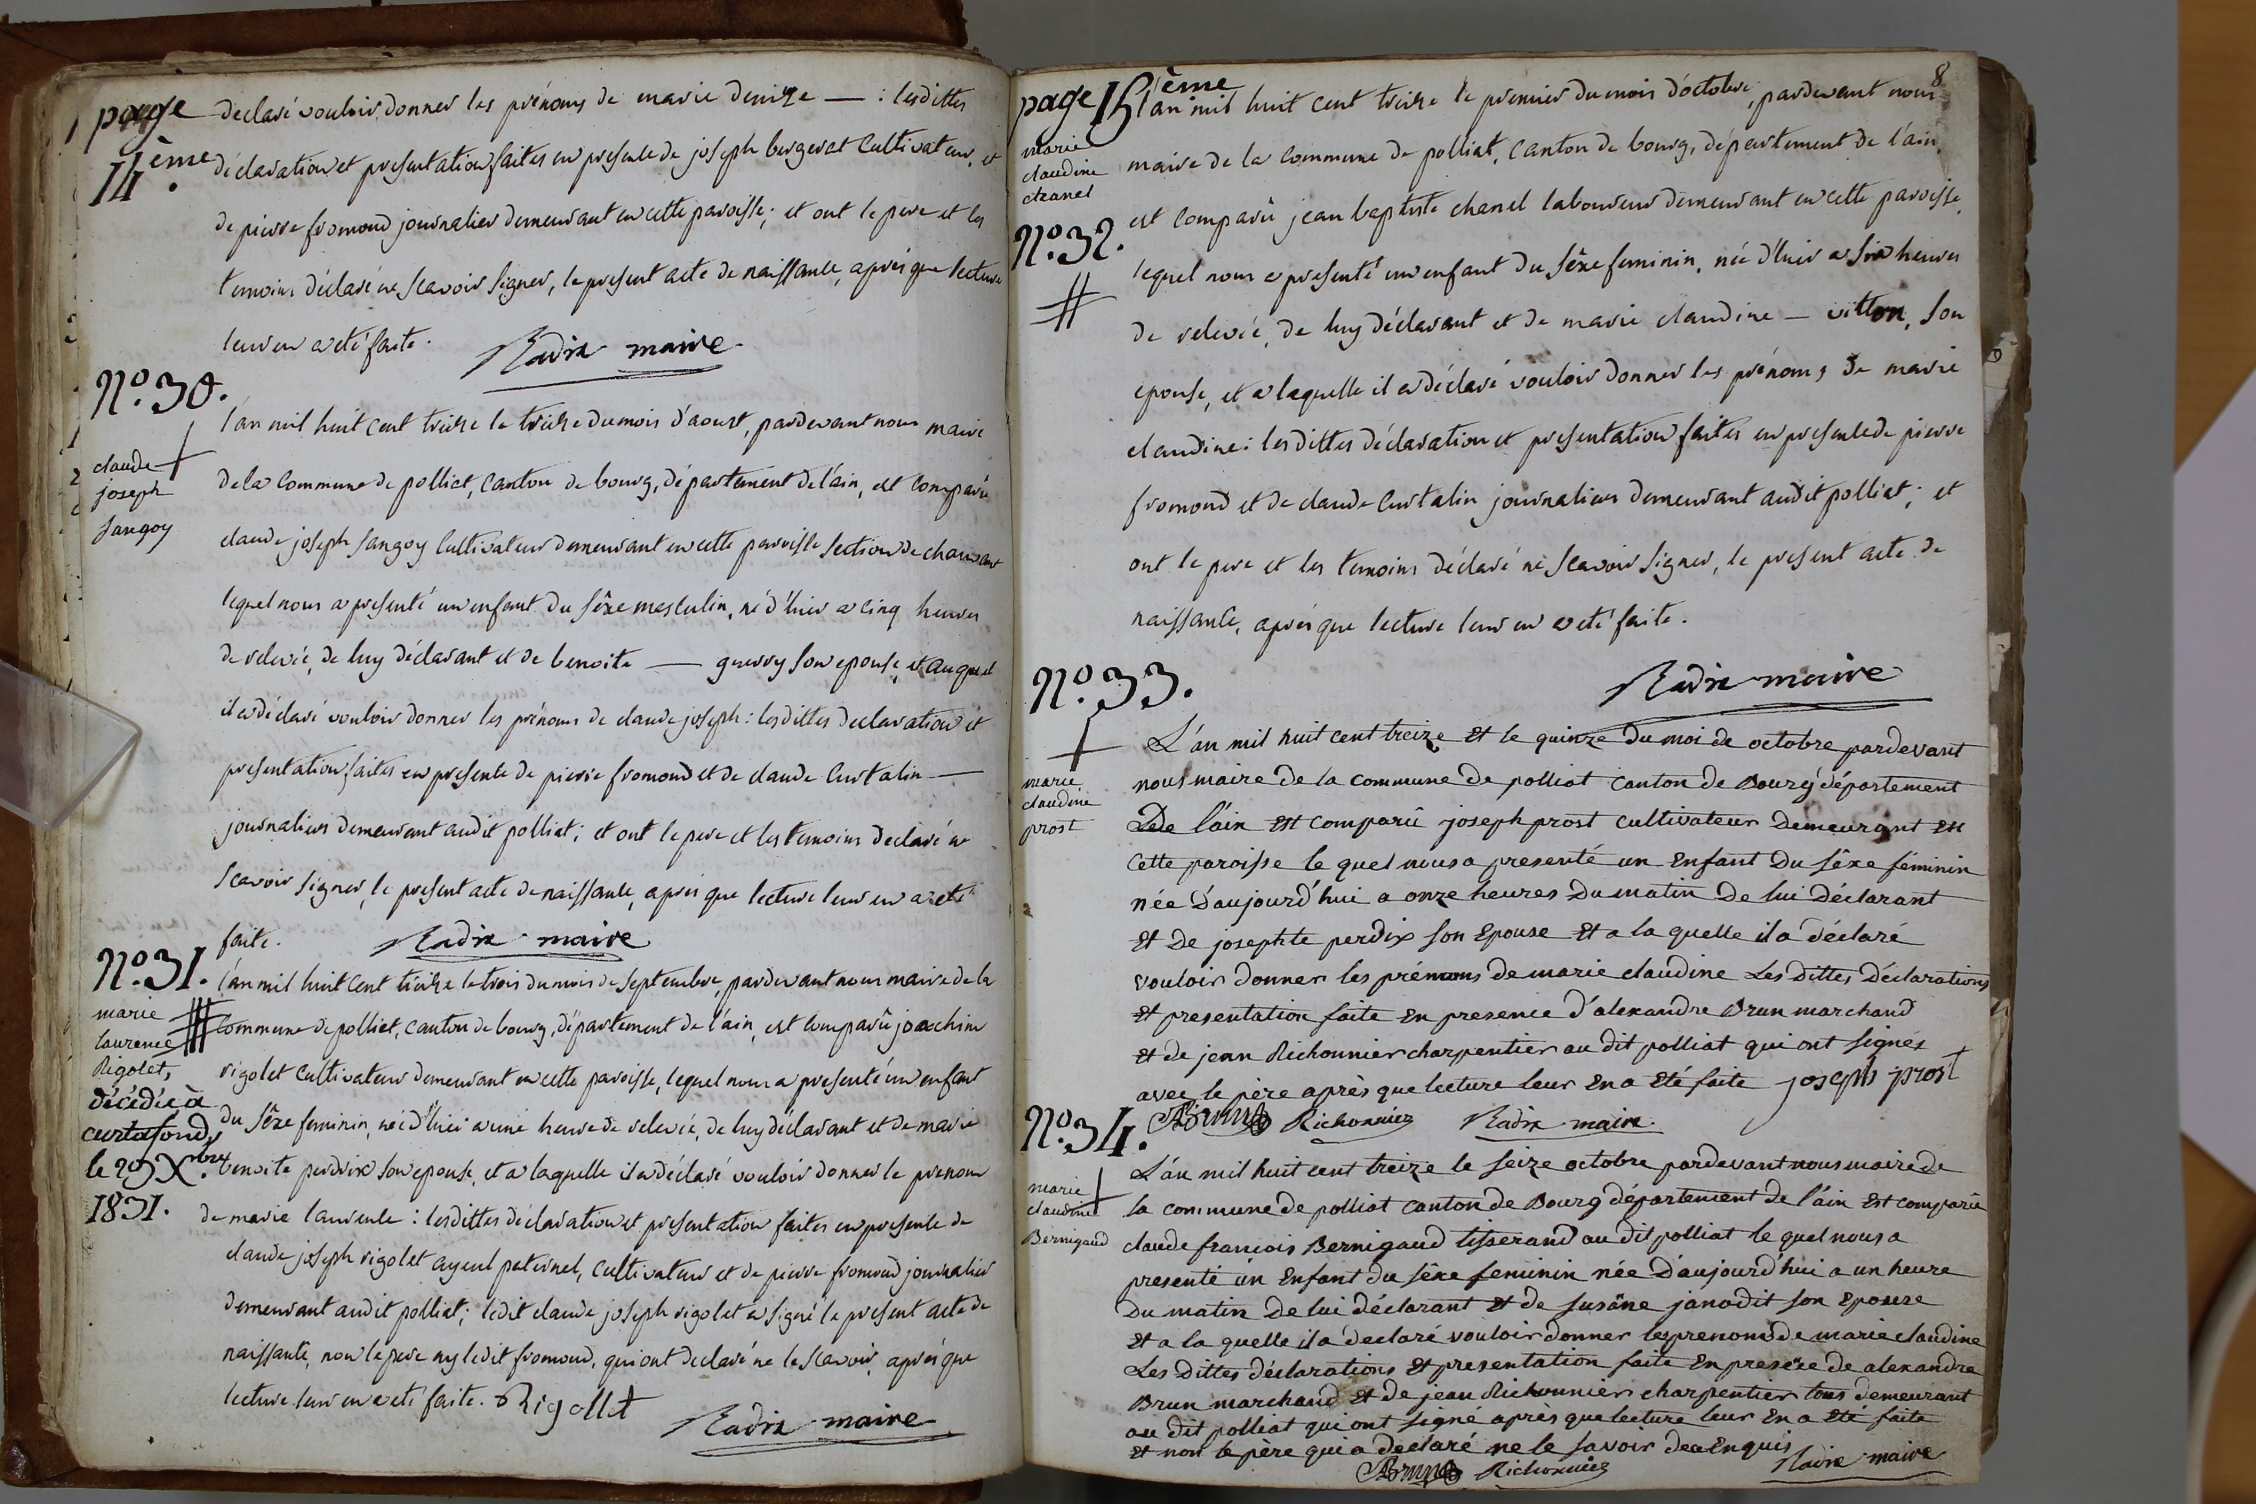 page
14ème.
declaré vouloir donner les prénoms de marie denize — : lesdittes
déclaration et presentation faites en presence de joseph bergerat Cultivateur, et
de pierre fromond journalier demeurant en cette paroisse; et ont le pere et les
temoins déclaré ne scavoir signer, le present acte de naissance, aprés que lecture
leur en a eté faite.
Radix maire
N.º 30.
claude
joseph
sangoy
l'an mil huit cent treize le treize du mois d'aoust, pardevant nous maire
de la Commune de polliat, canton de bourg, département de l'ain, est comparû
claude joseph sangoy Cultivateur demeurant en cette paroisse section de
lequel nous a presenté un enfant du sêxe masculin, né d'hier a cinq heures
de relevée, de luy déclarant et de benoite — guerry son epouse, et auquel
il a déclaré vouloir donner les prénoms de claude joseph: lesdittes declaration et
presentation faites en presence de pierre fromond et de claude Curtalin —
journaliers demeurant audit polliat; et ont le pere et les temoins declaré ne
scavoir signer, le present acte de naissance, aprés que lecture leur en a eté
faite.
Radix maire
N.º 31.
marie
laurence
Rigolet,
décédée à
curtafond,
le 29 Xbre.
1831.
l'an mil huit cent treize le trois du mois de septembre, pardevant nous maire de la
Commune de polliat, canton de bourg, département de l'ain, est comparû joachim
rigolet cultivateur demeurant en cette paroisse, lequel nous a presenté un enfant
du sêxe feminin, née d'hier a une heure de relevée, de luy déclarant et de marie
benoite perdrix son epouse, et a laquelle il a déclaré vouloir donner le prenom
de marie laurence : lesdittes déclaration et presentation faites en presence de
claude joseph rigolet ayeul paternel, cultivateur et de pierre fromond journalier
demeurant audit polliat; ledit claude joseph rigolet a signé le present acte de
naissance, non le pere ny ledit fromond, qui ont declaré ne le scavoir, aprés que
lecture leur en a eté faite. Rigollet
Radix maire
8
page 15ème
marie
claudine
chanel
N.º 32.
l'an mil huit cent treize le premier du mois d'octobre, pardevant nous
maire de la commune de polliat, canton de bourg, département de l'ain,
est comparû jean baptiste chanel laboureur demeurant en cette paroisse,
lequel nous a presenté un enfant du sêxe feminin, née d'hier a six heures
de relevée, de luy déclarant et de marie claudine — vitton, son
epouse, et a laquelle il a déclaré vouloir donner les prénoms de marie
claudine: lesdittes déclaration et presentation faites en presence de pierre
fromond et de claude Curtalin journaliers demeurant audit polliat; et
ont le pere et les temoins déclaré ne scavoir signer, le present acte de
naissance, aprés que lecture leur en a eté faite.
Radix maire
N.º 33.
marie
claudine
prost
L'an mil huit cent treize Et le quinze du moi de octobre pardevant
nous maire de la commune de polliat canton de Bourg département
De l'ain Est comparû joseph prost cultivateur Demeurant En
Cette paroisse le quel nous a presenté un Enfant Du sêxe féminin
née D'aujourd'hui a onze heures Du matin De lui Déclarant
Et De josephte perdix son Epouse Et a la quelle il a déclaré
vouloir donner les prémoms de marie claudine Les Dittes Déclarations
Et presentation faite En presence d'alexandre Brun marchand
Et de jean Richonnier charpentier au dit polliat qui ont signés
avec le père après que lecture leur En a Eté faite joseph prost
Brun Richonnier Radix maire
N.º 34.
marie
claudine
Bernigaud
L'an mil huit cent treize le seize octobre pardevant nous maire de
la commune de polliat canton de Bourg département de l'ain Est comparû
claude francois Bernigaud tisserand au dit polliat le quel nous a
presenté ún Enfant du sêxe feminin née D'aujourd'hui a un heure
Du matin De lui déclarant Et de susâne janodit son Epouse
Et a la quelle il a declaré vouloir donner les prenoms de marie claudine
Les Dittes déclarations Et presentation faite En presence de alexandre
Brun marchand Et de jean Richonnier charpentier tous demeurant
au dit polliat qui ont signé après que lecture leur En a Eté faite
Et non le père qui a declaré ne le savoir de ce Enquis
Brun Richonnier Radix maire